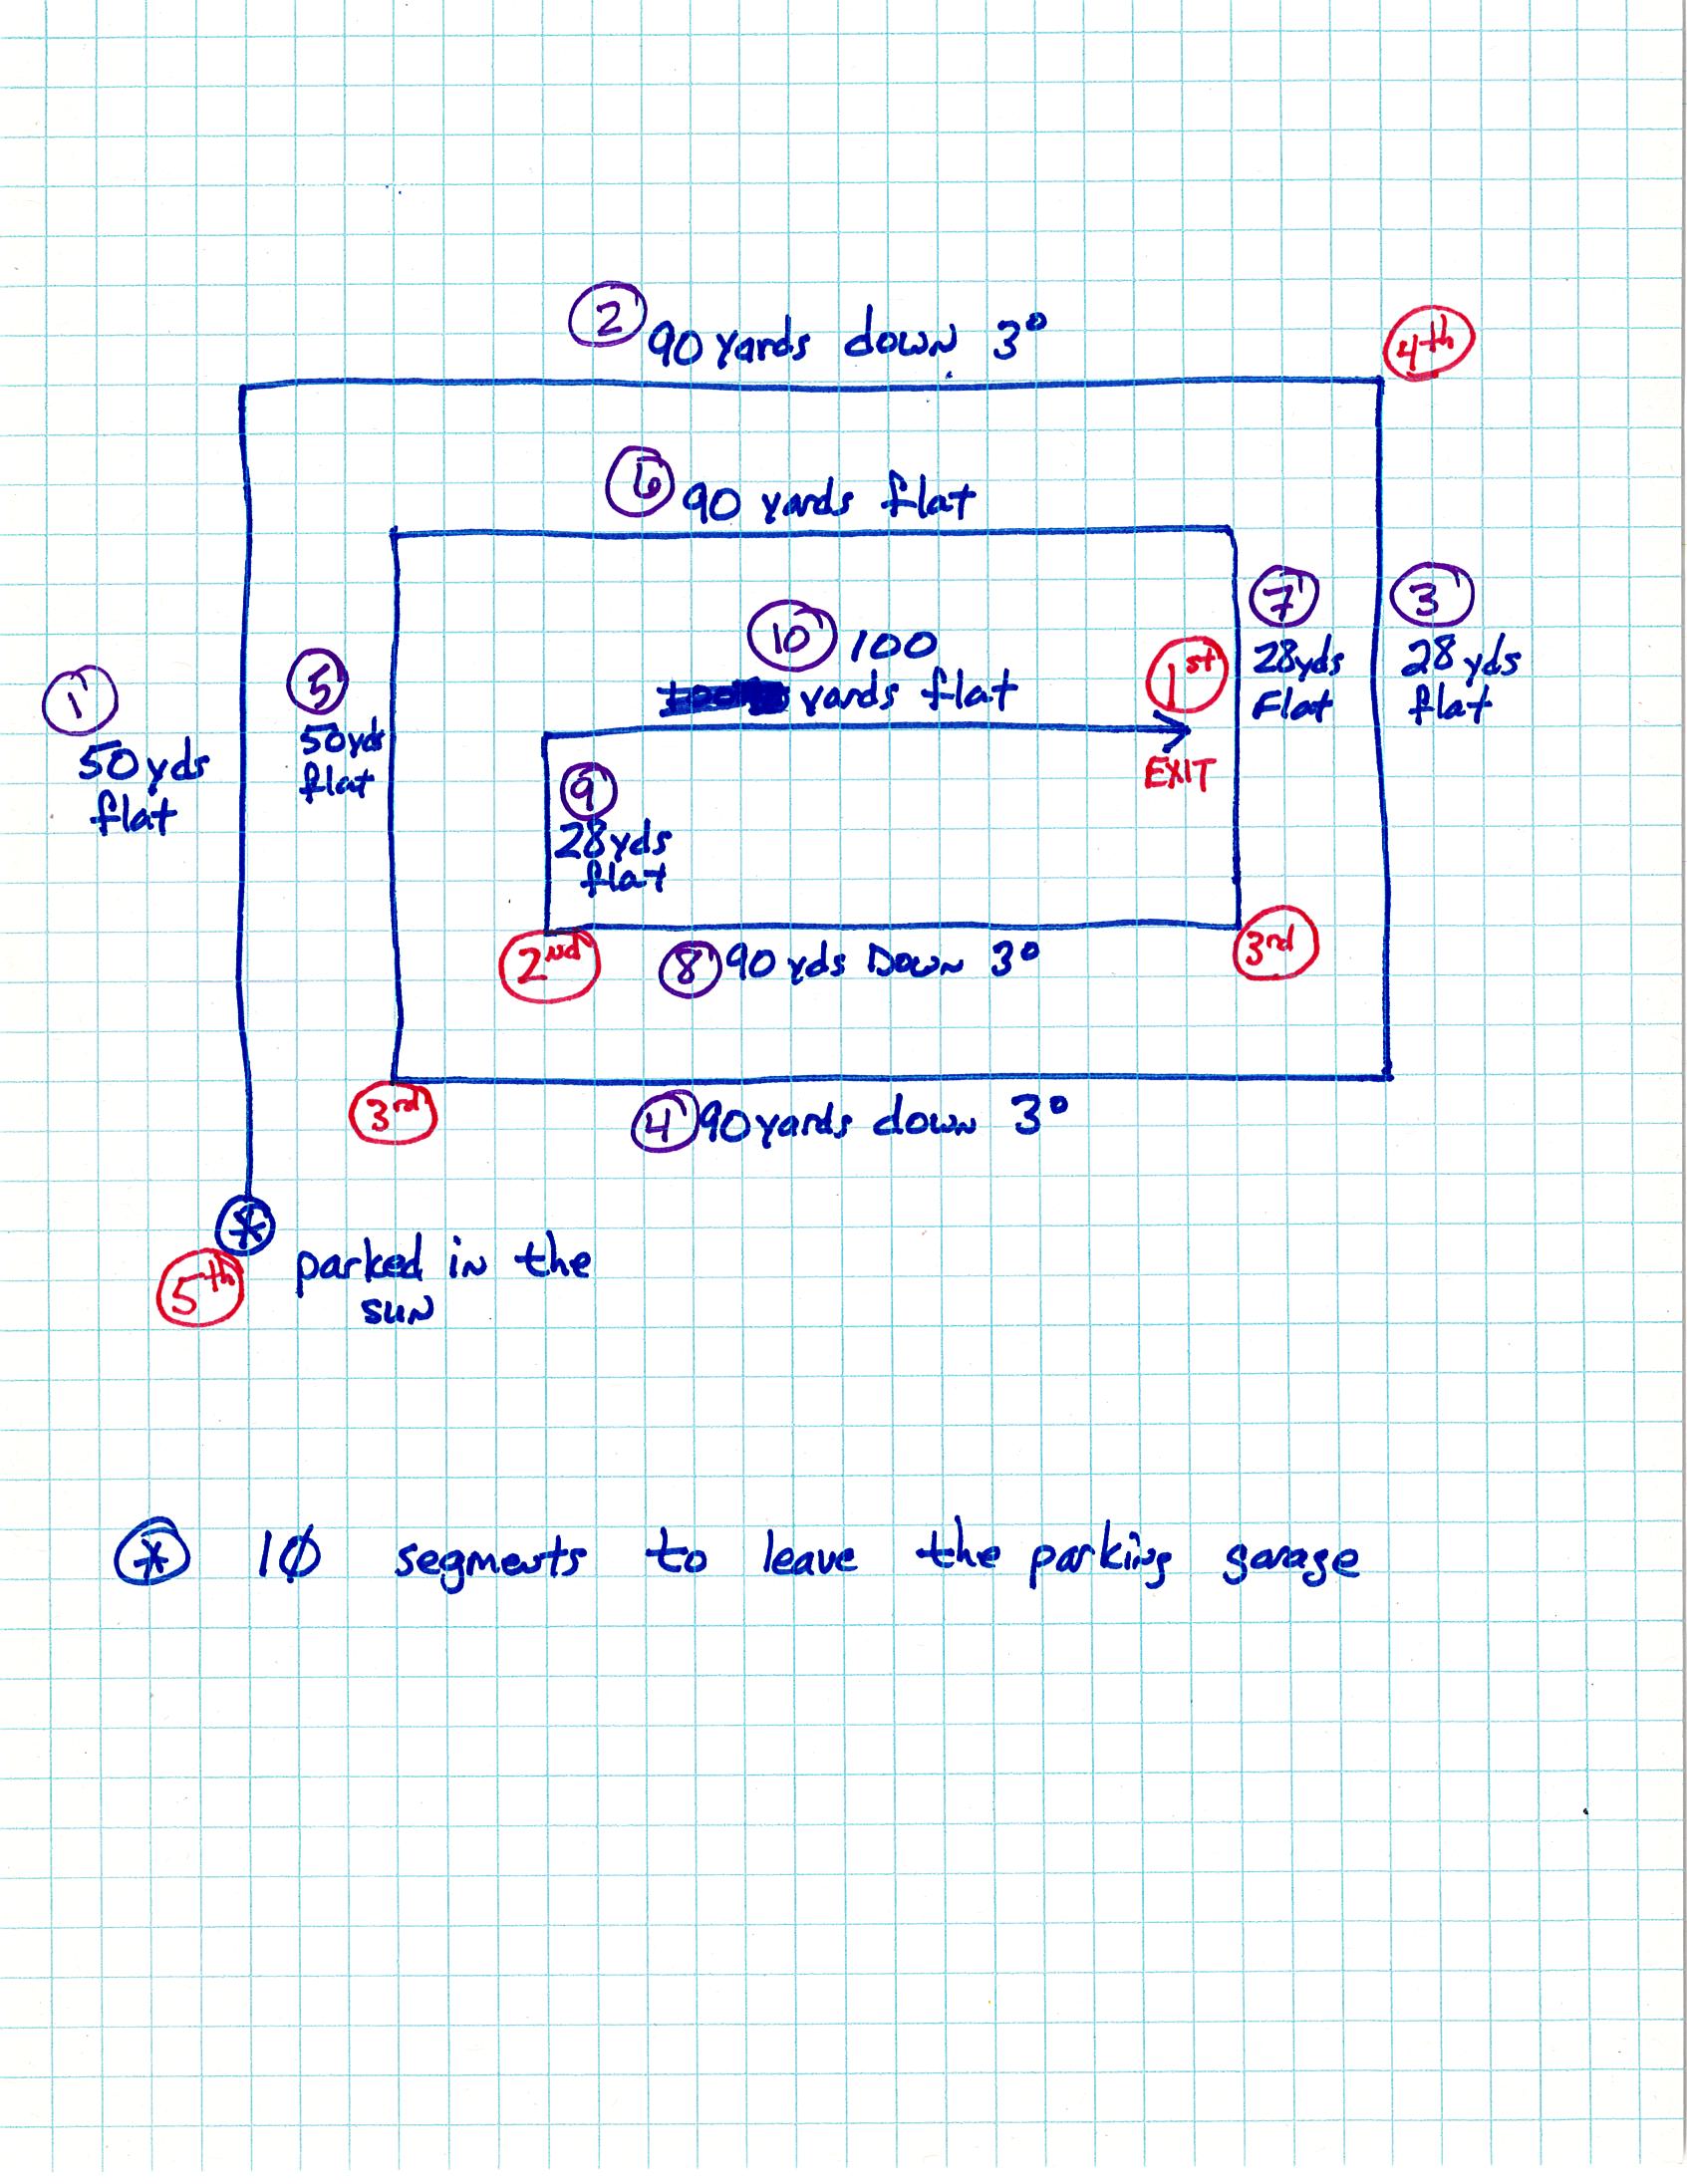 2 90 yards down 3°
4th
6 90 yards flat
10 100
yards flat
1st
EXIT
7
28yds
Flat
3
28 yds
flat
1
50 yds
flat
5
50yds
flat
9
28yds
flat
2nd
8 90 yds Down 3°
3rd
3rd
4 90 yards down 3°
*
5th
parked in the
sun
* 10 segments to leave the parking garage